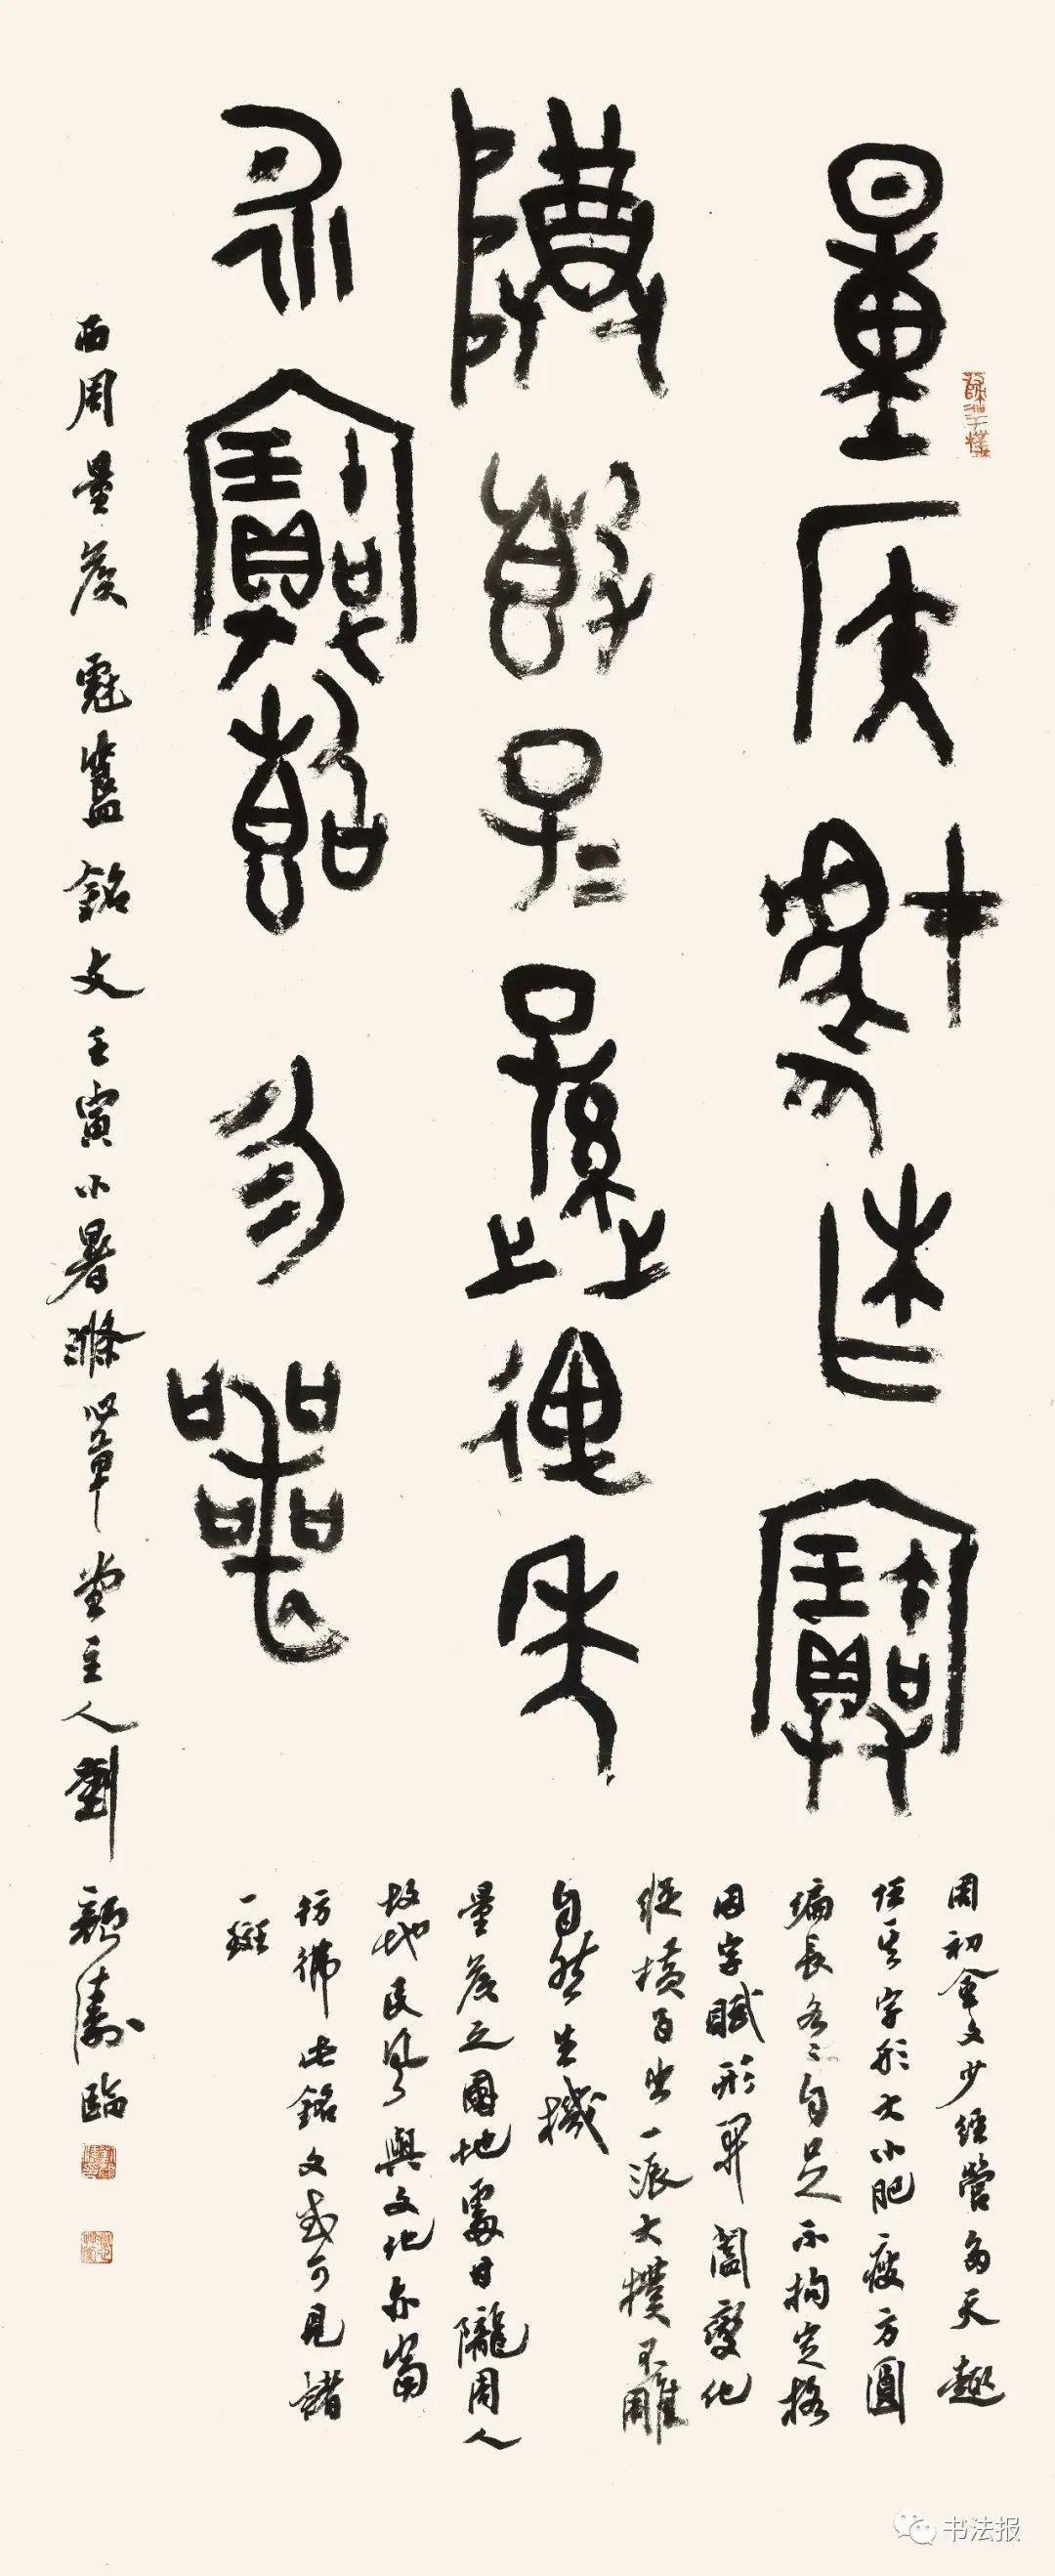 量侯𧱏柞作寶
尊簋子二孫二萬年
永寶簋勿喪
周初金文少經營多天趣
任其字形大小肥瘦方圓
編長各各自足不拘定格
因字賦形開闔變化
縱橫百出一派大樸不雕
自然生機
量侯之國地處甘隴周人
故地民風與文化亦當
彷彿此銘文或可見諸
一斑
西周量侯 簋銘文壬寅小暑滌心草堂主人劉顏濤臨
书法报